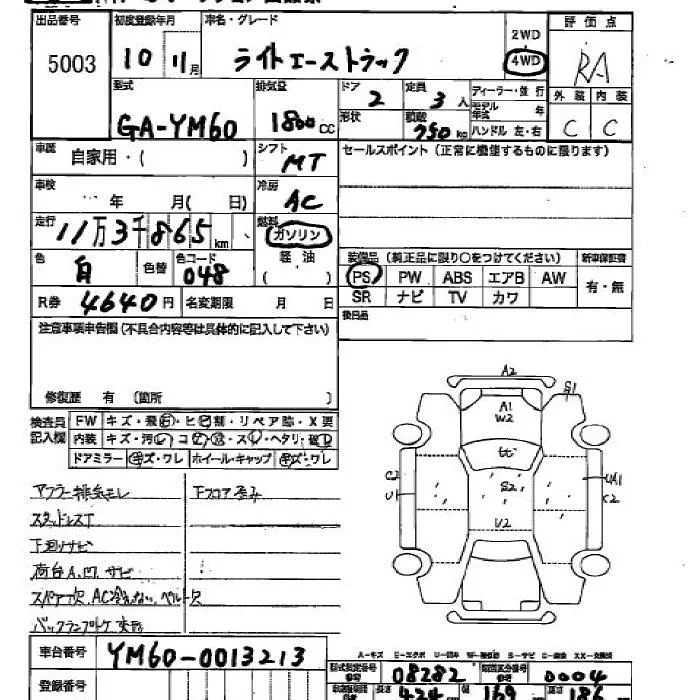 出品番号 初度登録年月 車名・グレード 2WD 評価点
5003 10 11月 ライトエーストラック 4WD RA
型式 排気量 ドア 定員 ディーラー・並行 外装 内装
GA-YM60 1800cc 2 3人 モデル年式 年 C C
形状 積載 750kg ハンドル 左・右
車歴 自家用・( ) シフト MT セールスポイント (正常に機能するものに限ります)
車検 年 月( 日) 冷房 AC
走行 11万3千865km 燃料 ガソリン
軽油 ( )
装備品 (純正品に限り○をつけてください) 新車保証書
色 白 色替 色コード 048
PS PW ABS エアB AW 有・無
SR ナビ TV カワ
R券 4640円 名変期限 月 日
後日品
注意事項申告欄 (不具合内容等は具体的に記入して下さい)
修復歴 有 (箇所 )
検査員記入欄
FW キズ・飛石・ヒビ割・リペア跡・X要
内装 キズ・汚レ・コゲ・穴・スレ・ヘタリ・破レ
ドアミラー キズ・ワレ ホイール・キャップ キズ・ワレ
マフラー排気モレ 下フロア歪み
スタッドレスT
下廻りサビ
荷台A.凹.サビ
スペア欠.AC冷えない.ベルト欠
バックランプLケ 変形
A2
S1
A1
W2
S2
V2
C2
U1
UA1
C2
A-キズ
車台番号 YM60-0013213
登録番号
型式指定番号 08282 類別区分番号 0004
長さ 424 幅 169 高さ 186